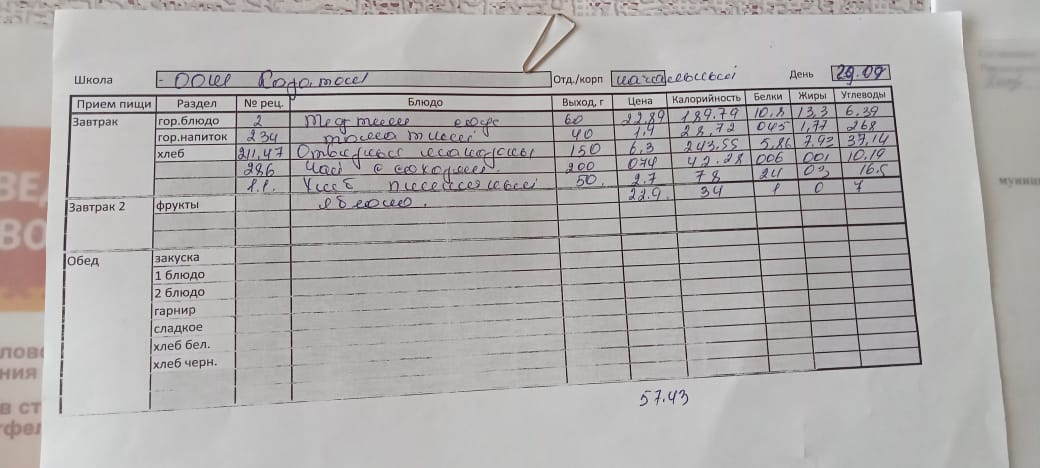 Школа - ООШ Отд./корп начальный День 29.09
Прием пищи Раздел № рец. Блюдо Выход, г Цена Калорийность Белки Жиры Углеводы
Завтрак гор.блюдо 2 60 22,89 189.79 10,8 13,3 6,39
гор.напиток 234 40 1,9 28,72 045 1,77 268
хлеб 211,47 Отварные макароны 150 6,3 243,55 5,86 7,93 37,14
286 Чай с сахаром. 200 074 42.28 006 001 10,19
Хлеб пшеничный 50 2,7 78 24 03 16.5
Завтрак 2 фрукты яблоко. 22.9 34 0 7
Обед закуска
1 блюдо
2 блюдо
гарнир
сладкое
хлеб бел.
хлеб черн.
57.43